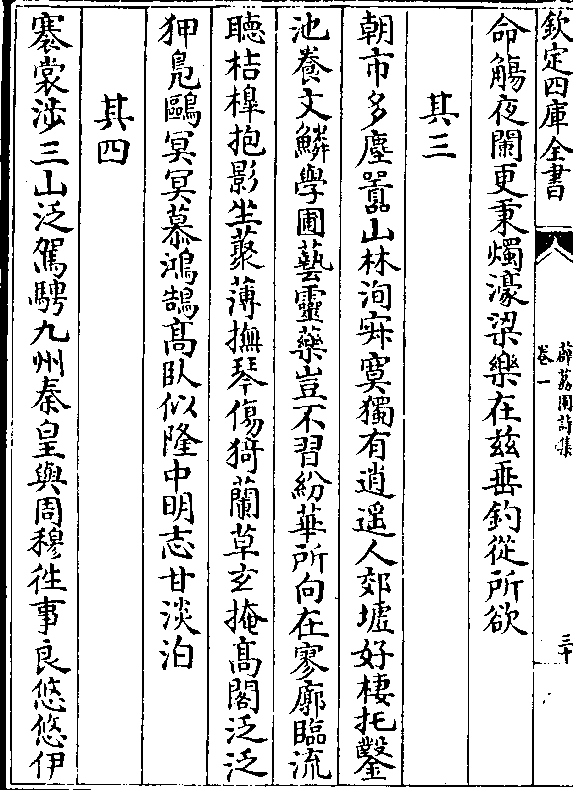 欽定四庫全書
薜荔園詩集
卷一
三十
命觴夜闌更秉燭濠梁樂在兹垂釣從所欲
其三
朝市多塵囂山林洵寂寞獨有逍遥人郊墟好棲托鑿
池養文鱗學圃藝靈藥豈不習紛華所向在寥廓臨流
聽桔橰抱影坐藂薄撫琴傷猗蘭草玄掩髙閣泛泛
狎鳬鷗冥冥慕鴻鵠髙臥似隆中明志甘淡泊
其四
褰裳涉三山泛駕騁九州秦皇與周穆徃事良悠悠伊